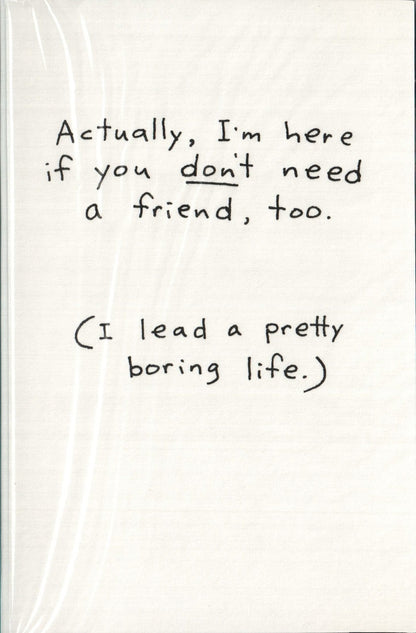 Actually, I'm here
if you don't need
a friend, too.
(I lead a pretty
boring life.)